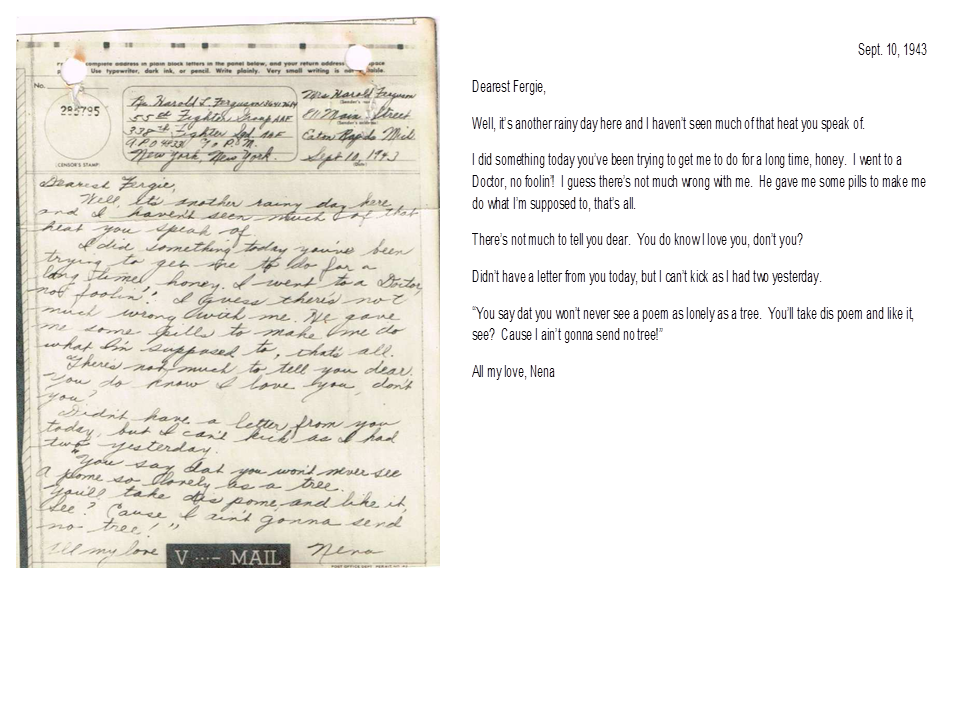 complete address in plain block letters in the panel below, and your return address space
Use typewriter, dark ink, or pencil. Write plainly. Very small writing is
No.
(CENSOR'S STAMP)
Harold L. Ferguson
55th Fighter Group AAF
338th Fighter Sqd. AAF
A.P.O P.M.
New York, New York.
Mrs Harold Ferguson
Main Street
Rapids Mich.
Sept 10, 1943
Dearest Fergie,
Well, It's another rainy day here
and I haven't seen much of that
heat you speak of.
I did something today you've been
trying to get me to do for a
long time, honey. I went to a Doctor,
not foolin'! I guess there's not
much wrong with me. He gave
me some pills to make me do
what I'm supposed to, that's all.
There's not much to tell you dear.
You do know I love you, don't
you?
Didn't have a letter from you
today, but I can't kick as I had
two yesterday.
"You say dat you won't never see
a pome so lovely as a tree.
You'll take dis pome, and like it,
See? Cause I ain't gonna send
no tree!"
All my love Nena
V ···– MAIL
Sept. 10, 1943
Dearest Fergie,
Well, it's another rainy day here and I haven't seen much of that heat you speak of.
I did something today you've been trying to get me to do for a long time, honey. I went to a
Doctor, no foolin'! I guess there's not much wrong with me. He gave me some pills to make me
do what I'm supposed to, that's all.
There's not much to tell you dear. You do know I love you, don't you?
Didn't have a letter from you today, but I can't kick as I had two yesterday.
"You say dat you won't never see a poem as lonely as a tree. You'll take dis poem and like it,
see? Cause I ain't gonna send no tree!"
All my love, Nena